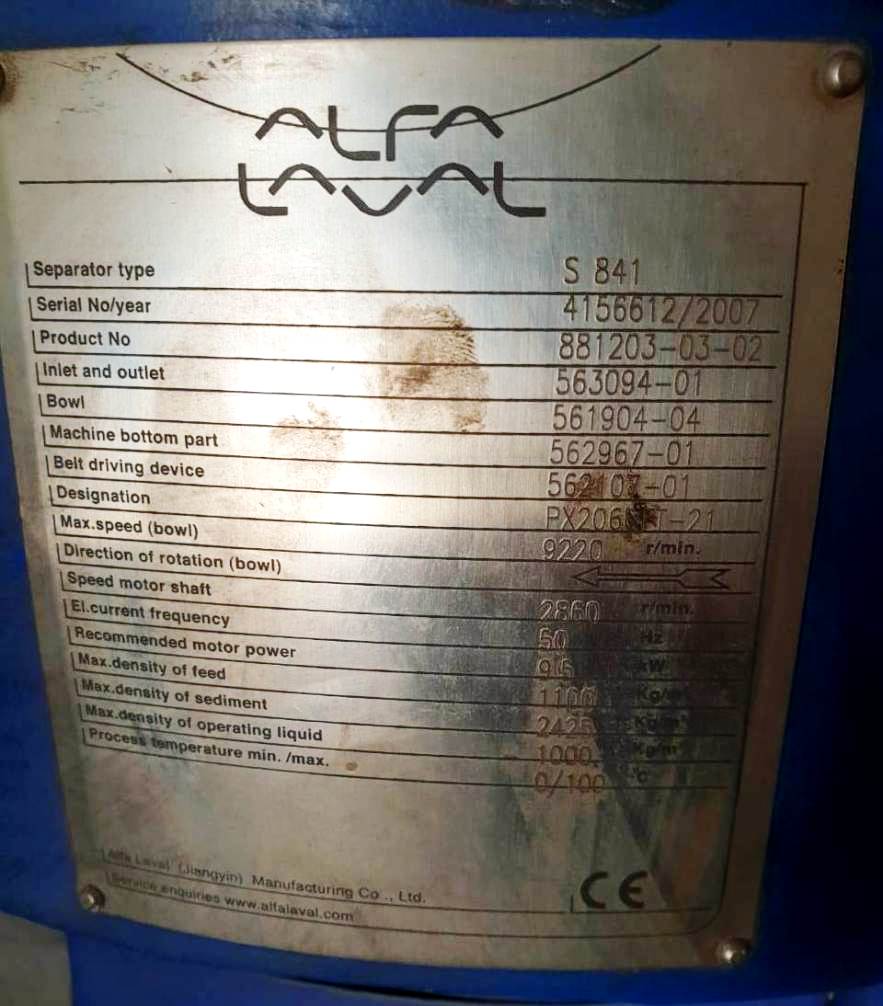 ALFA
LAVAL
Separator type S 841
Serial No/year 4156612/2007
Product No 881203-03-02
Inlet and outlet 563094-01
Bowl 561904-04
Machine bottom part 562967-01
Belt driving device 562107-01
Designation
Max.speed (bowl) 9220 r/min.
Direction of rotation (bowl)
Speed motor shaft 2860 r/min.
El.current frequency 50 Hz
Recommended motor power kW
Max.density of feed 1100 Kg/m³
Max.density of sediment 2425 Kg/m³
Max.density of operating liquid 1000 Kg/m³
Process temperature min. /max. 0/100 °C
Alfa Laval (Jiangyin) Manufacturing Co ., Ltd.
Service enquiries www.alfalaval.com
CE